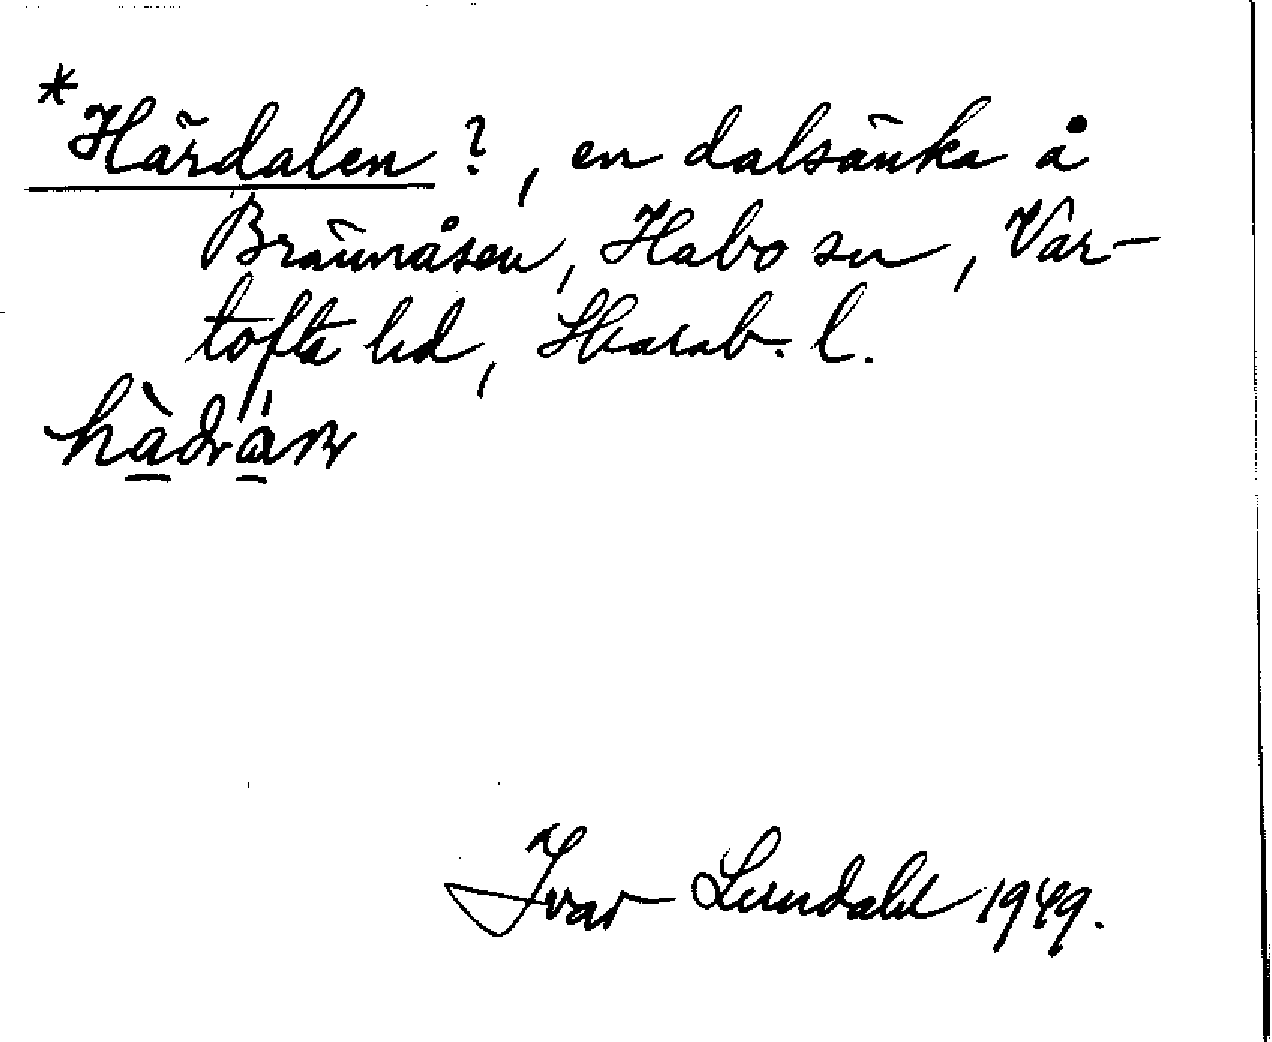 *Härdalen ?, en dalsänka å
Brännåsen, Habo sn, Var-
tofta hd, Skarab. l.
Ivar Lundahl 1949.